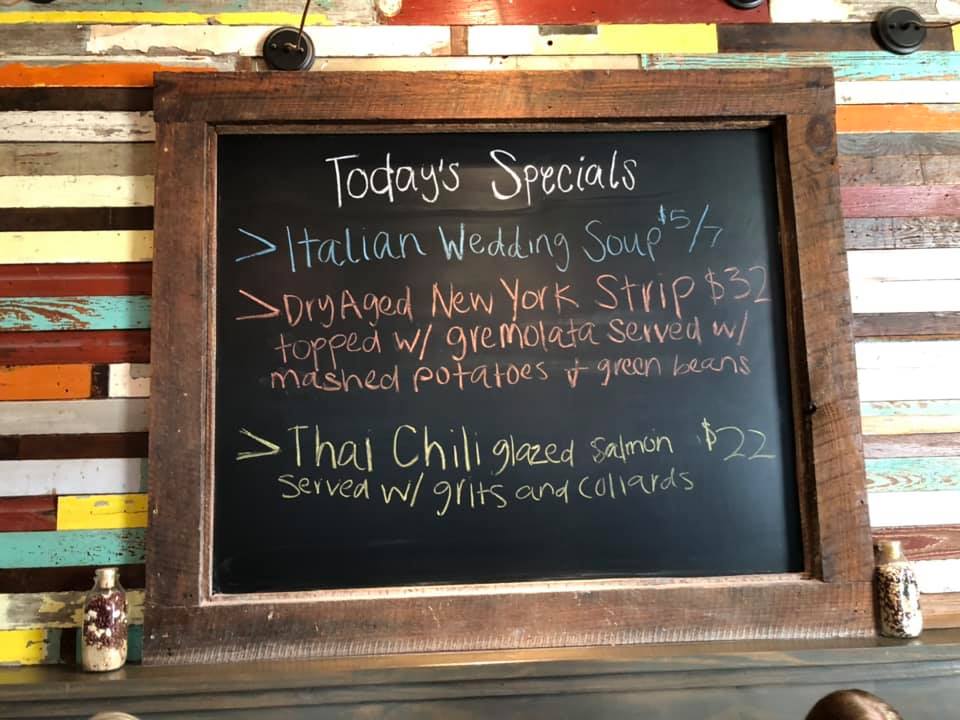 Today's Specials
> Italian Wedding Soup $5/7
> Dry Aged New York Strip $32
topped w/ gremolata served w/
mashed potatoes + green beans
> Thai Chili glazed salmon $22
served w/ grits and collards